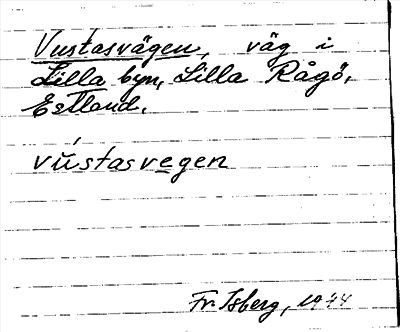 Vustasvägen, väg i
Lilla byn, Lilla Rågö,
Estland.
vústasvegen
Fr. Isberg, 1944